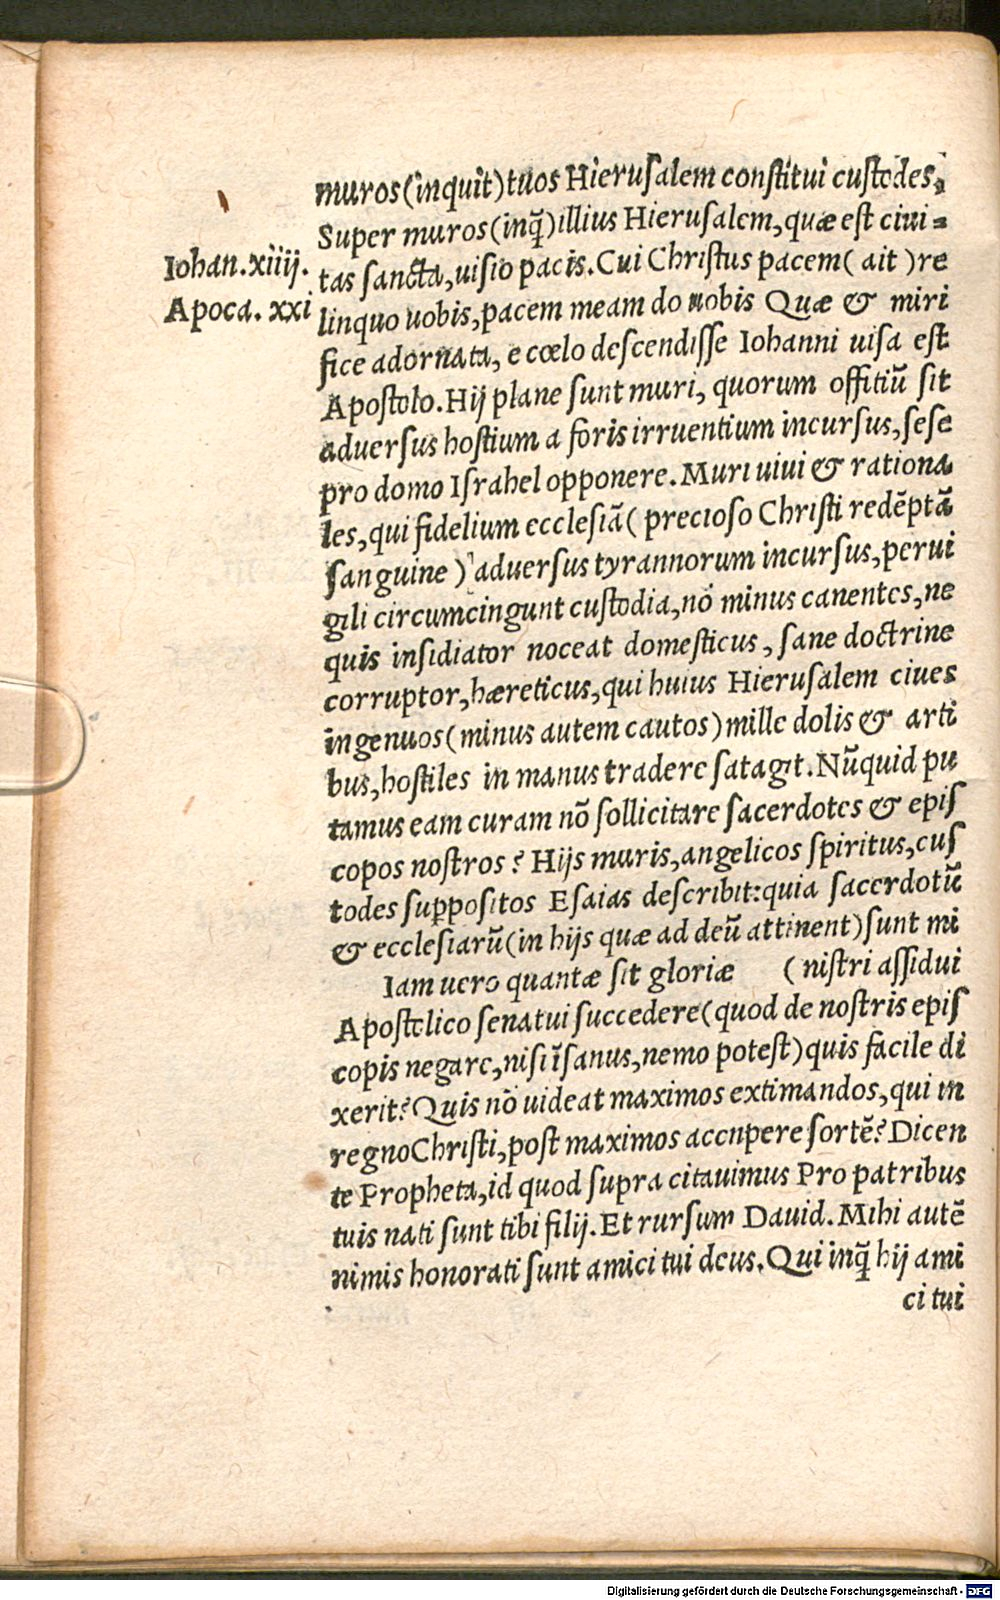 muros(inquit)tuos Hieruſalem conſtitui cuſtodes.
Super muros(inq̃)illius Hieruſalem,quæ eſt ciui=
tas ſancta,uiſio pacis.Cui Chriſtus pacem( ait )re
linquo uobis,pacem meam do uobis Quæ & miri
fice adornata, e cœlo deſcendiſſe Iohanni uiſa eſt
Apoſtolo.Hij plane ſunt muri, quorum offitiũ ſit
aduerſus hoſtium a foris irruentium incurſus,ſeſe
pro domo Iſrahel opponere.Muri uiui & rationa
les,qui fidelium eccleſiã( precioſo Chriſti redẽptã
ſanguine ) aduerſus tyrannorum incurſus,perui
gili circumcingunt cuſtodia,nõ minus canentes,ne
quis inſidiator noceat domeſticus, ſane doctrine
corruptor,hæreticus,qui huius Hieruſalem ciues
ingenuos(minus autem cautos)mille dolis & arti
bus,hoſtiles in manus tradere ſatagit.Nũquid pu
tamus eam curam nõ ſollicitare ſacerdotes & epiſ
copos noſtros? Hijs muris,angelicos ſpiritus,cuſ
todes ſuppoſitos Eſaias deſcribit:quia ſacerdotũ
& eccleſiarũ(in hijs quæ ad deũ attinent)ſunt mi
Iam uero quantæ ſit gloriæ (niſtri aſſidui
Apoſtolico ſenatui ſuccedere(quod de noſtris epiſ
copis negare,niſi ĩſanus,nemo poteſt)quis facile di
xerit?Quis nõ uideat maximos extimandos,qui in
regno Chriſti,poſt maximos accnpere ſortẽ?Dicen
te Propheta,id quod ſupra citauimus Pro patribus
tuis nati ſunt tibi filij.Et rurſum Dauid.Mihi autẽ
nimis honorati ſunt amici tui deus.Qui inq̃ hij ami
ci tui
Iohan.xiiij.
Apoca.xxi
Digitalisierung gefördert durch die Deutsche Forschungsgemeinschaft - DFG